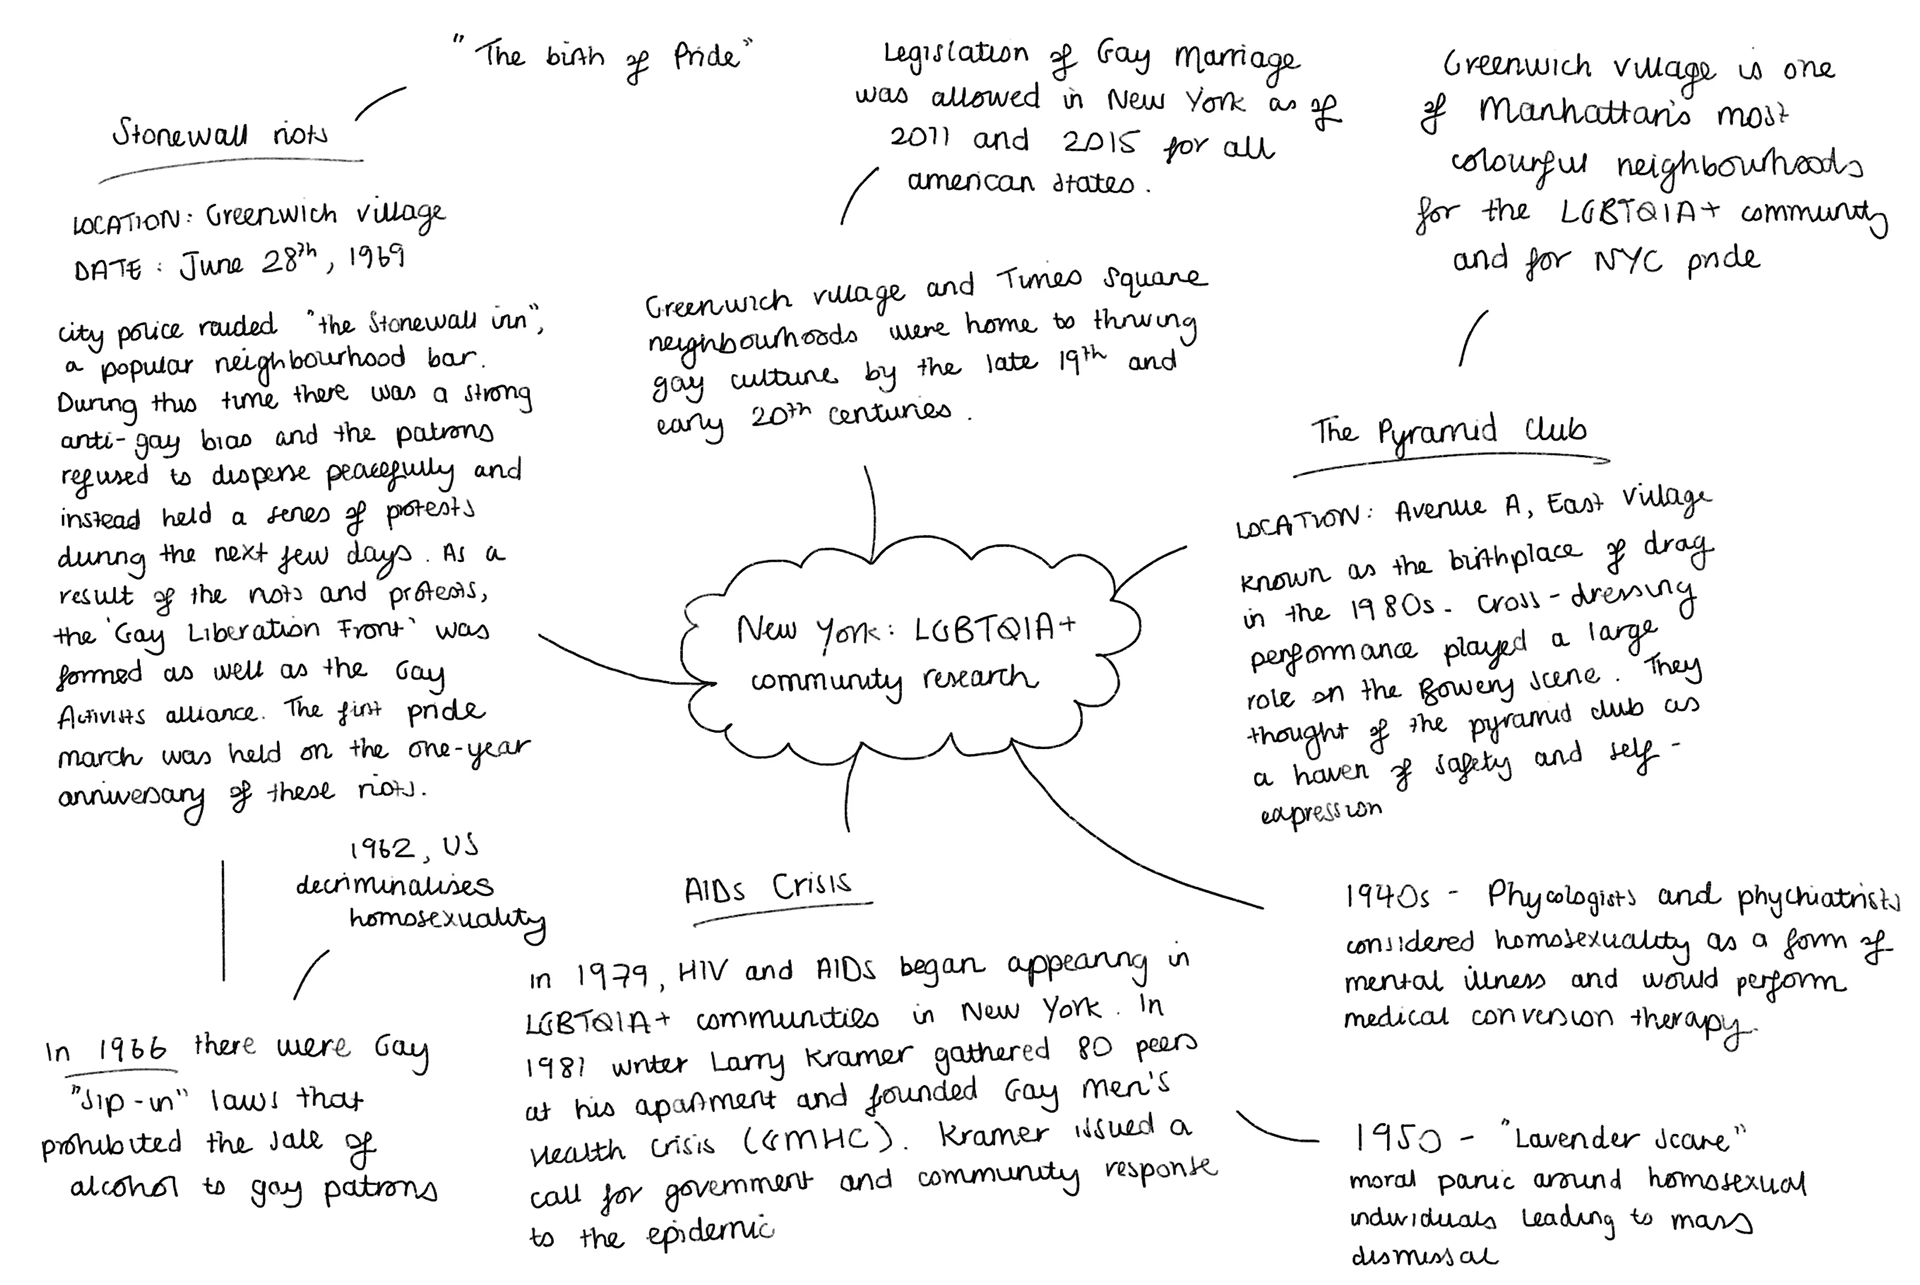 "The birth of Pride"
Stonewall riots
LOCATION: Greenwich village
DATE: June 28th, 1969
city police raided "the Stonewall inn",
a popular neighbourhood bar.
During this time there was a strong
anti-gay bias and the patrons
refused to disperse peacefully and
instead held a series of protests
during the next few days. As a
result of the riots and protests,
the 'Gay Liberation Front' was
formed as well as the Gay
Activists alliance. The first pride
march was held on the one-year
anniversary of these riots.
1962, US
decriminalises
homosexuality
In 1966 there were Gay
"sip-in" laws that
prohibited the sale of
alcohol to gay patrons
Legislation of Gay Marriage
was allowed in New York as of
2011 and 2015 for all
american states.
Greenwich village and Times Square
neighbourhoods were home to thriving
gay culture by the late 19th and
early 20th centuries.
New York: LGBTQIA+
community research
AIDs Crisis
In 1979, HIV and AIDs began appearing in
LGBTQIA+ communities in New York. In
1981 writer Larry Kramer gathered 80 peers
at his apartment and founded Gay Men's
Health Crisis (GMHC). Kramer issued a
call for government and community response
to the epidemic
Greenwich village is one
of Manhattan's most
colourful neighbourhoods
for the LGBTQIA+ community
and for NYC pride
The Pyramid Club
LOCATION: Avenue A, East Village
Known as the birthplace of drag
in the 1980s. Cross-dressing
performance played a large
role on the Bowery scene. They
thought of the pyramid club as
a haven of safety and self-
expression
1940s - Phycologists and phychiatrists
considered homosexuality as a form of
mental illness and would perform
medical conversion therapy.
1950 - "Lavender scare"
moral panic around homosexual
individuals leading to mass
dismissal